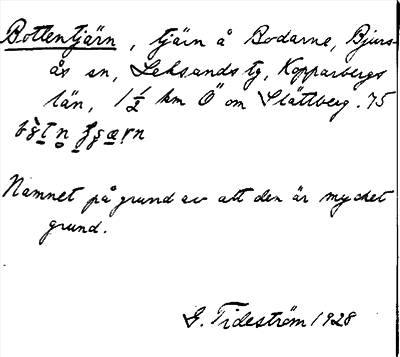 Bottentjärn, tjärn å Bodarne, Bjurs-
ås sn, Leksands tg, Kopparbergs
län, 1 1/2 km Ö om Slättberg. 75
Namnet på grund av att den är mycket
grund.
G. Tideström 1928